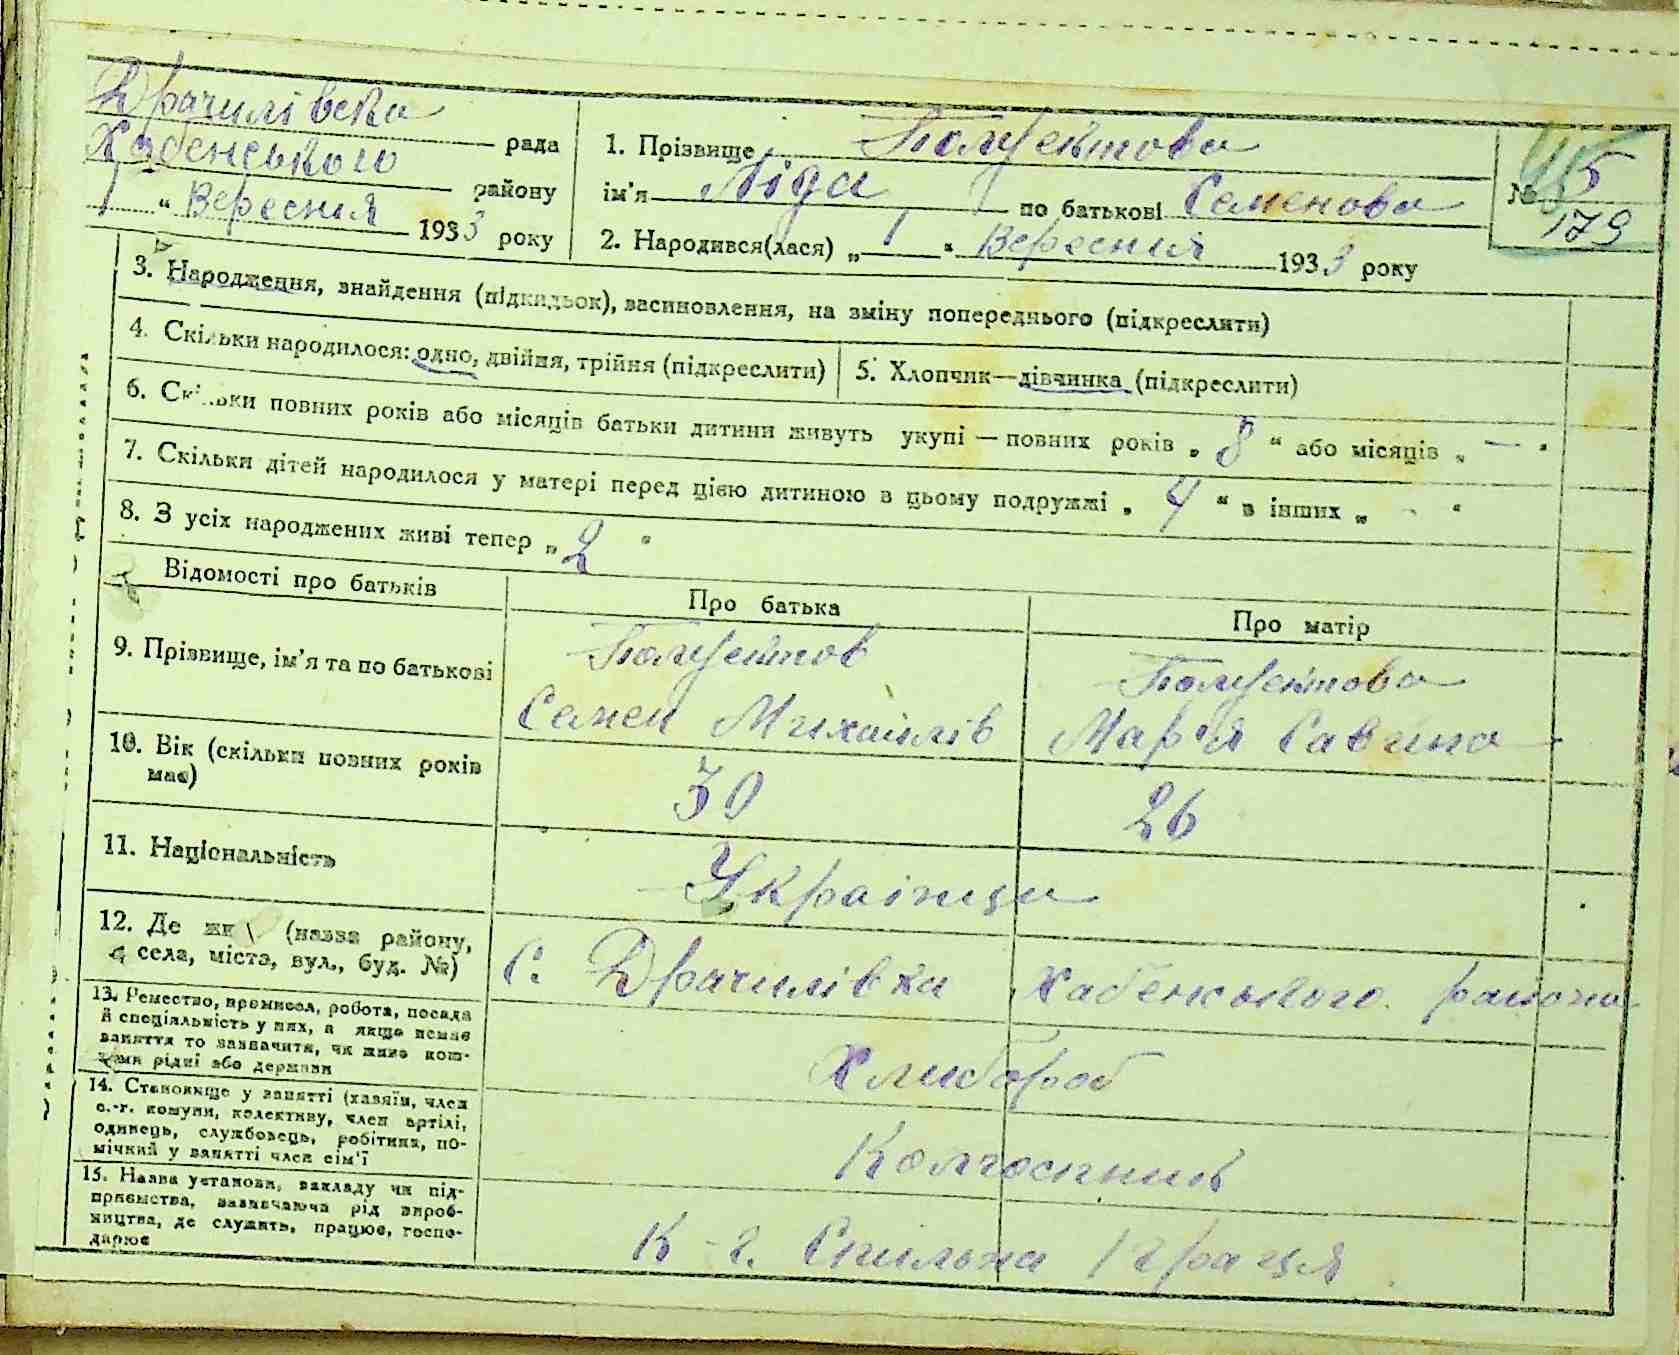 Драчилівська рада
Хабенського району
1 " Вересня 1933 року
1. Прізвище
ім'я Ліда по батькові Семенова
№ 5
179
2. Народився(лася) „ 1 " Вересня 1933 року
3. Народження, знайдення (підкидьок), засиновлення, на зміну попереднього (підкреслити)
4. Скільки народилося: одно, двійня, трійня (підкреслити)
5. Хлопчик—дівчинка (підкреслити)
6. Скільки повних років або місяців батьки дитини живуть укупі — повних років „ 8 " або місяців „ — "
7. Скільки дітей народилося у матері перед цією дитиною в цьому подружжі „ 4 " в інших „ - "
8. З усіх народжених живі тепер „ 2 "
Відомості про батьків
Про батька
Про матір
9. Прізвище, ім'я та по батькові
Семен Михайлів
Мар'я Савина
10. Вік (скільки повних років має)
30
26
11. Національність
Українци
12. Де жи (назва району,
села, міста, вул., буд. №)
с. Драчилівка Хабенського района
13. Ремество, промисел, робота, посада
й спеціяльність у них, а якщо немає
заняття то зазначити, чи живе кош-
тами рідні або держави
Хлибороб
14. Становище у занятті (хазяїн, член
с.-г. комуни, колективу, член артілі,
одинець, службовець, робітник, по-
мічний у занятті член сім'ї
Колгоспник
15. Назва установи, закладу чи під-
приємства, зазначаючи рід вироб-
ництва, де служить, працює, госпо-
дарює
К-г. Спильна Праця